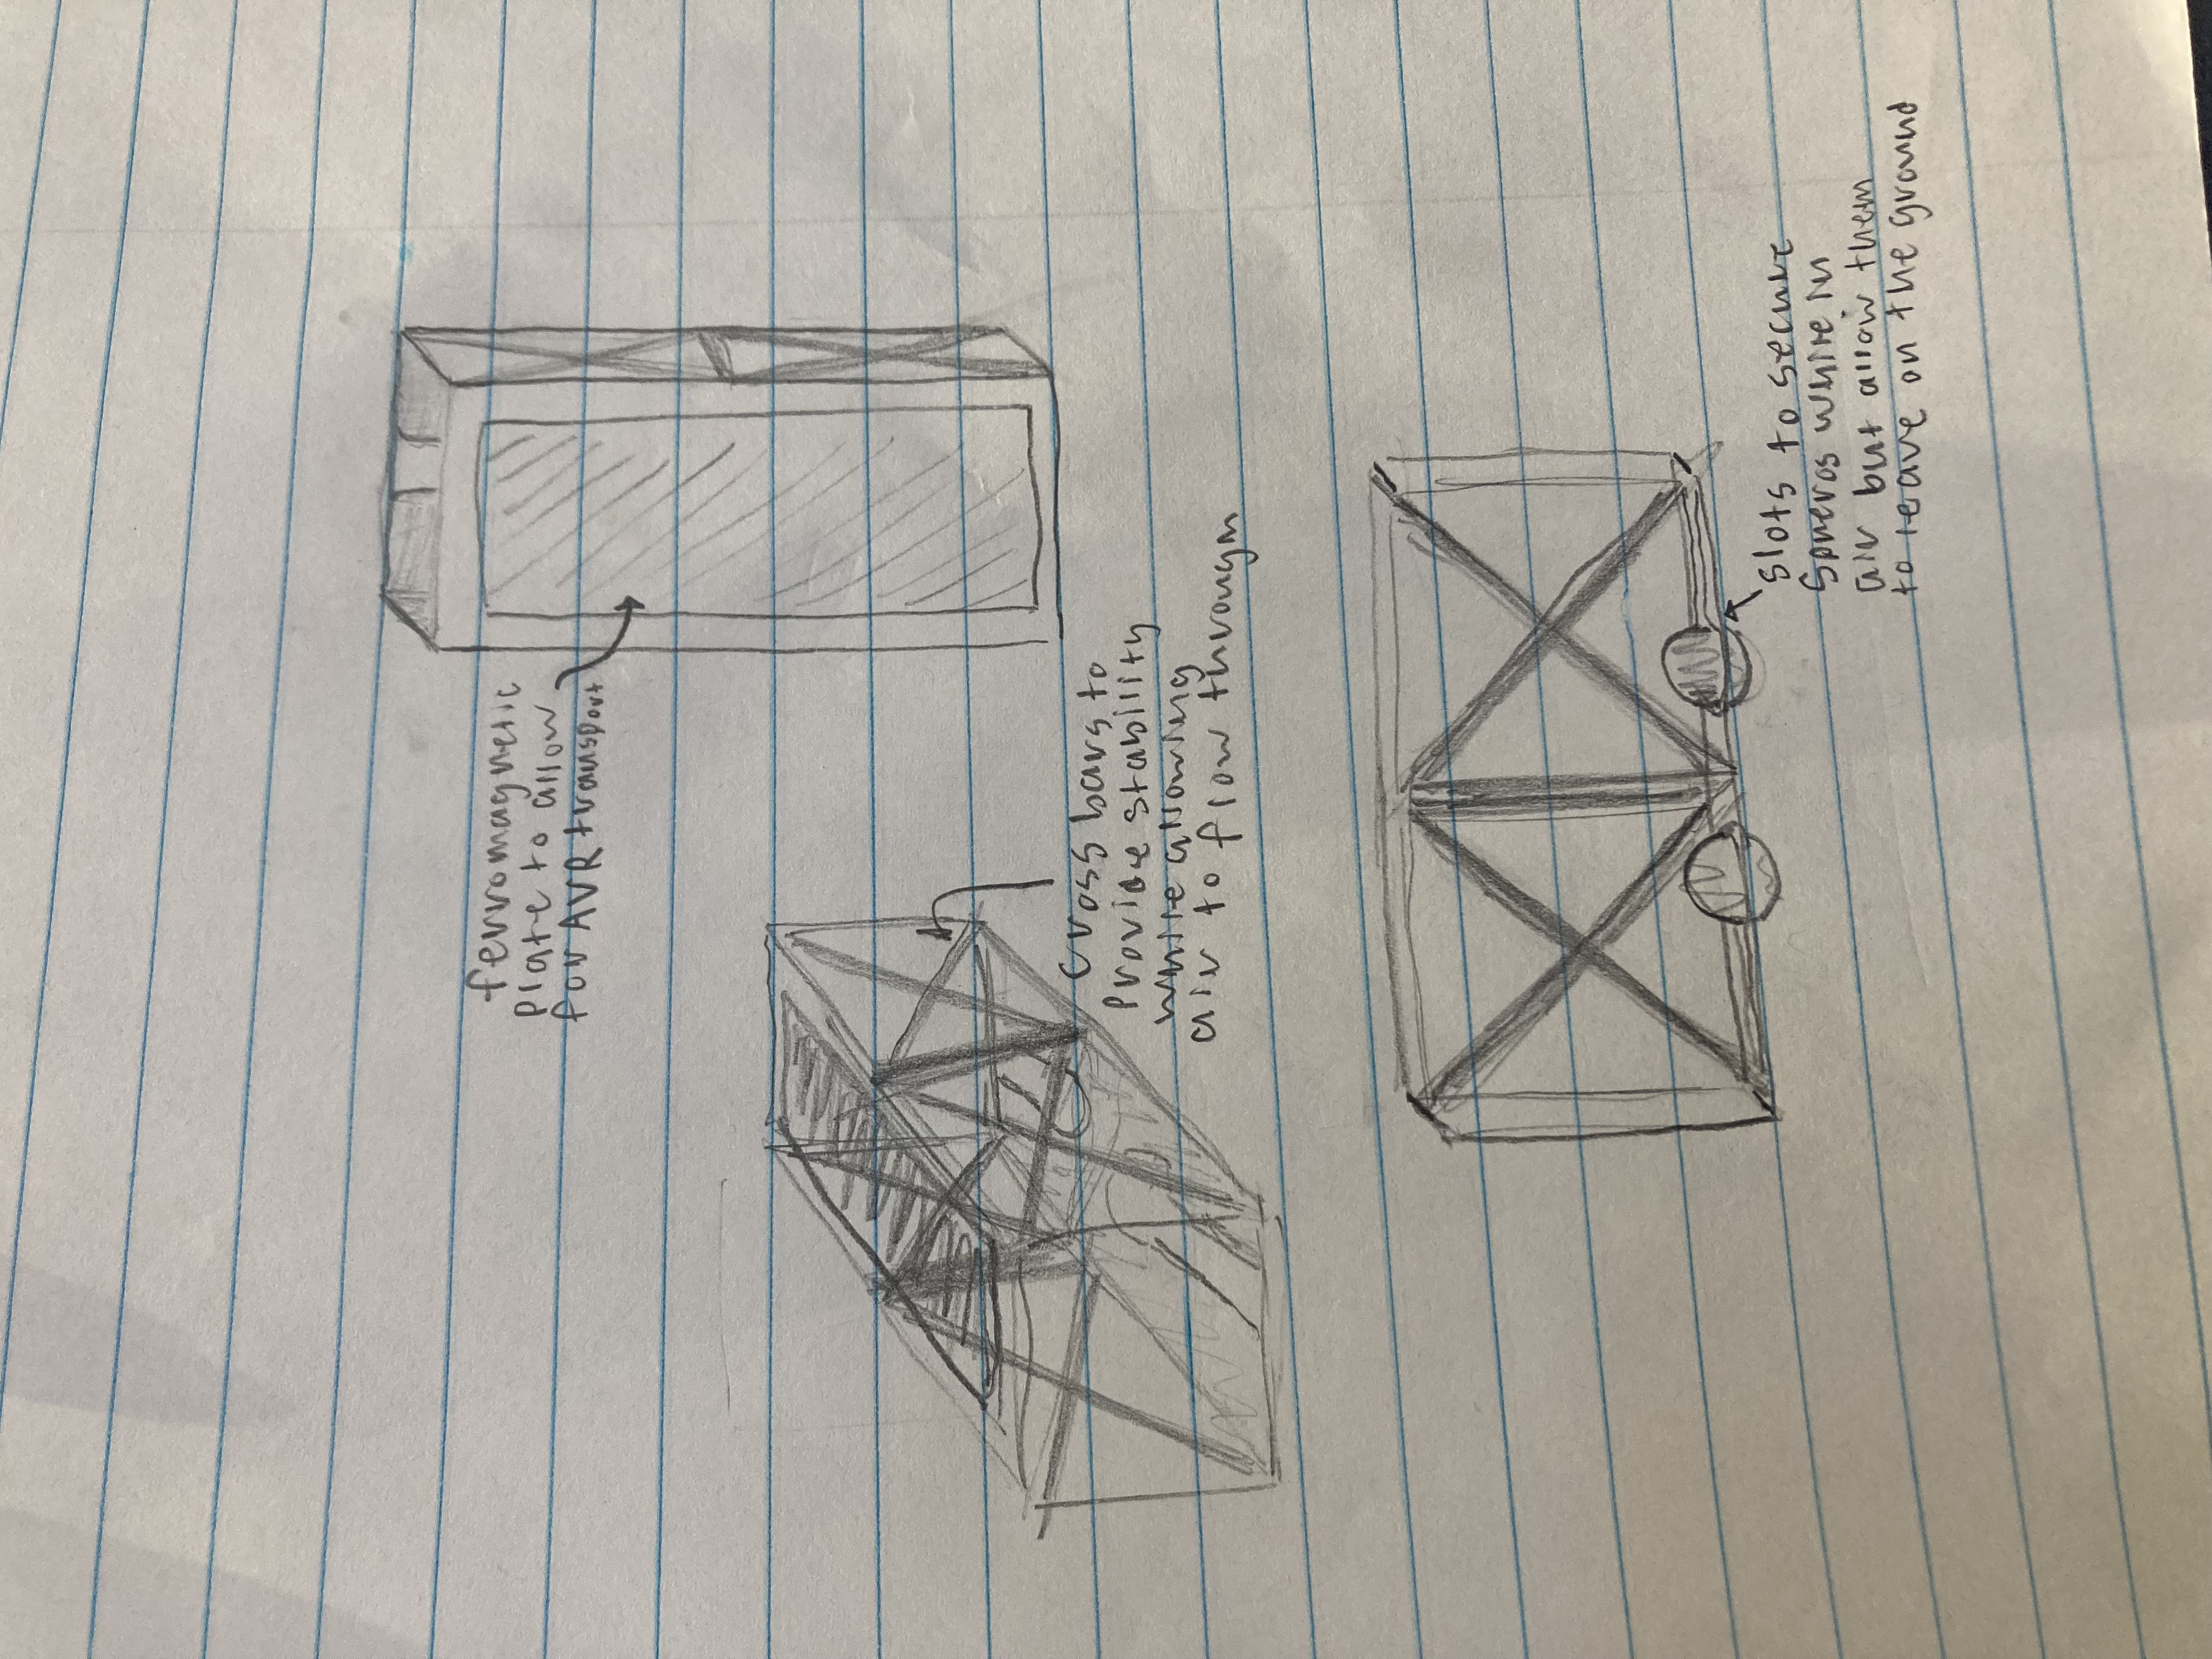 ferromagnetic
plate to allow
for AVR transport
cross bars to
provide stability
while allowing
air to flow through
slots to secure
Spheros while in
air but allow them
to leave on the ground